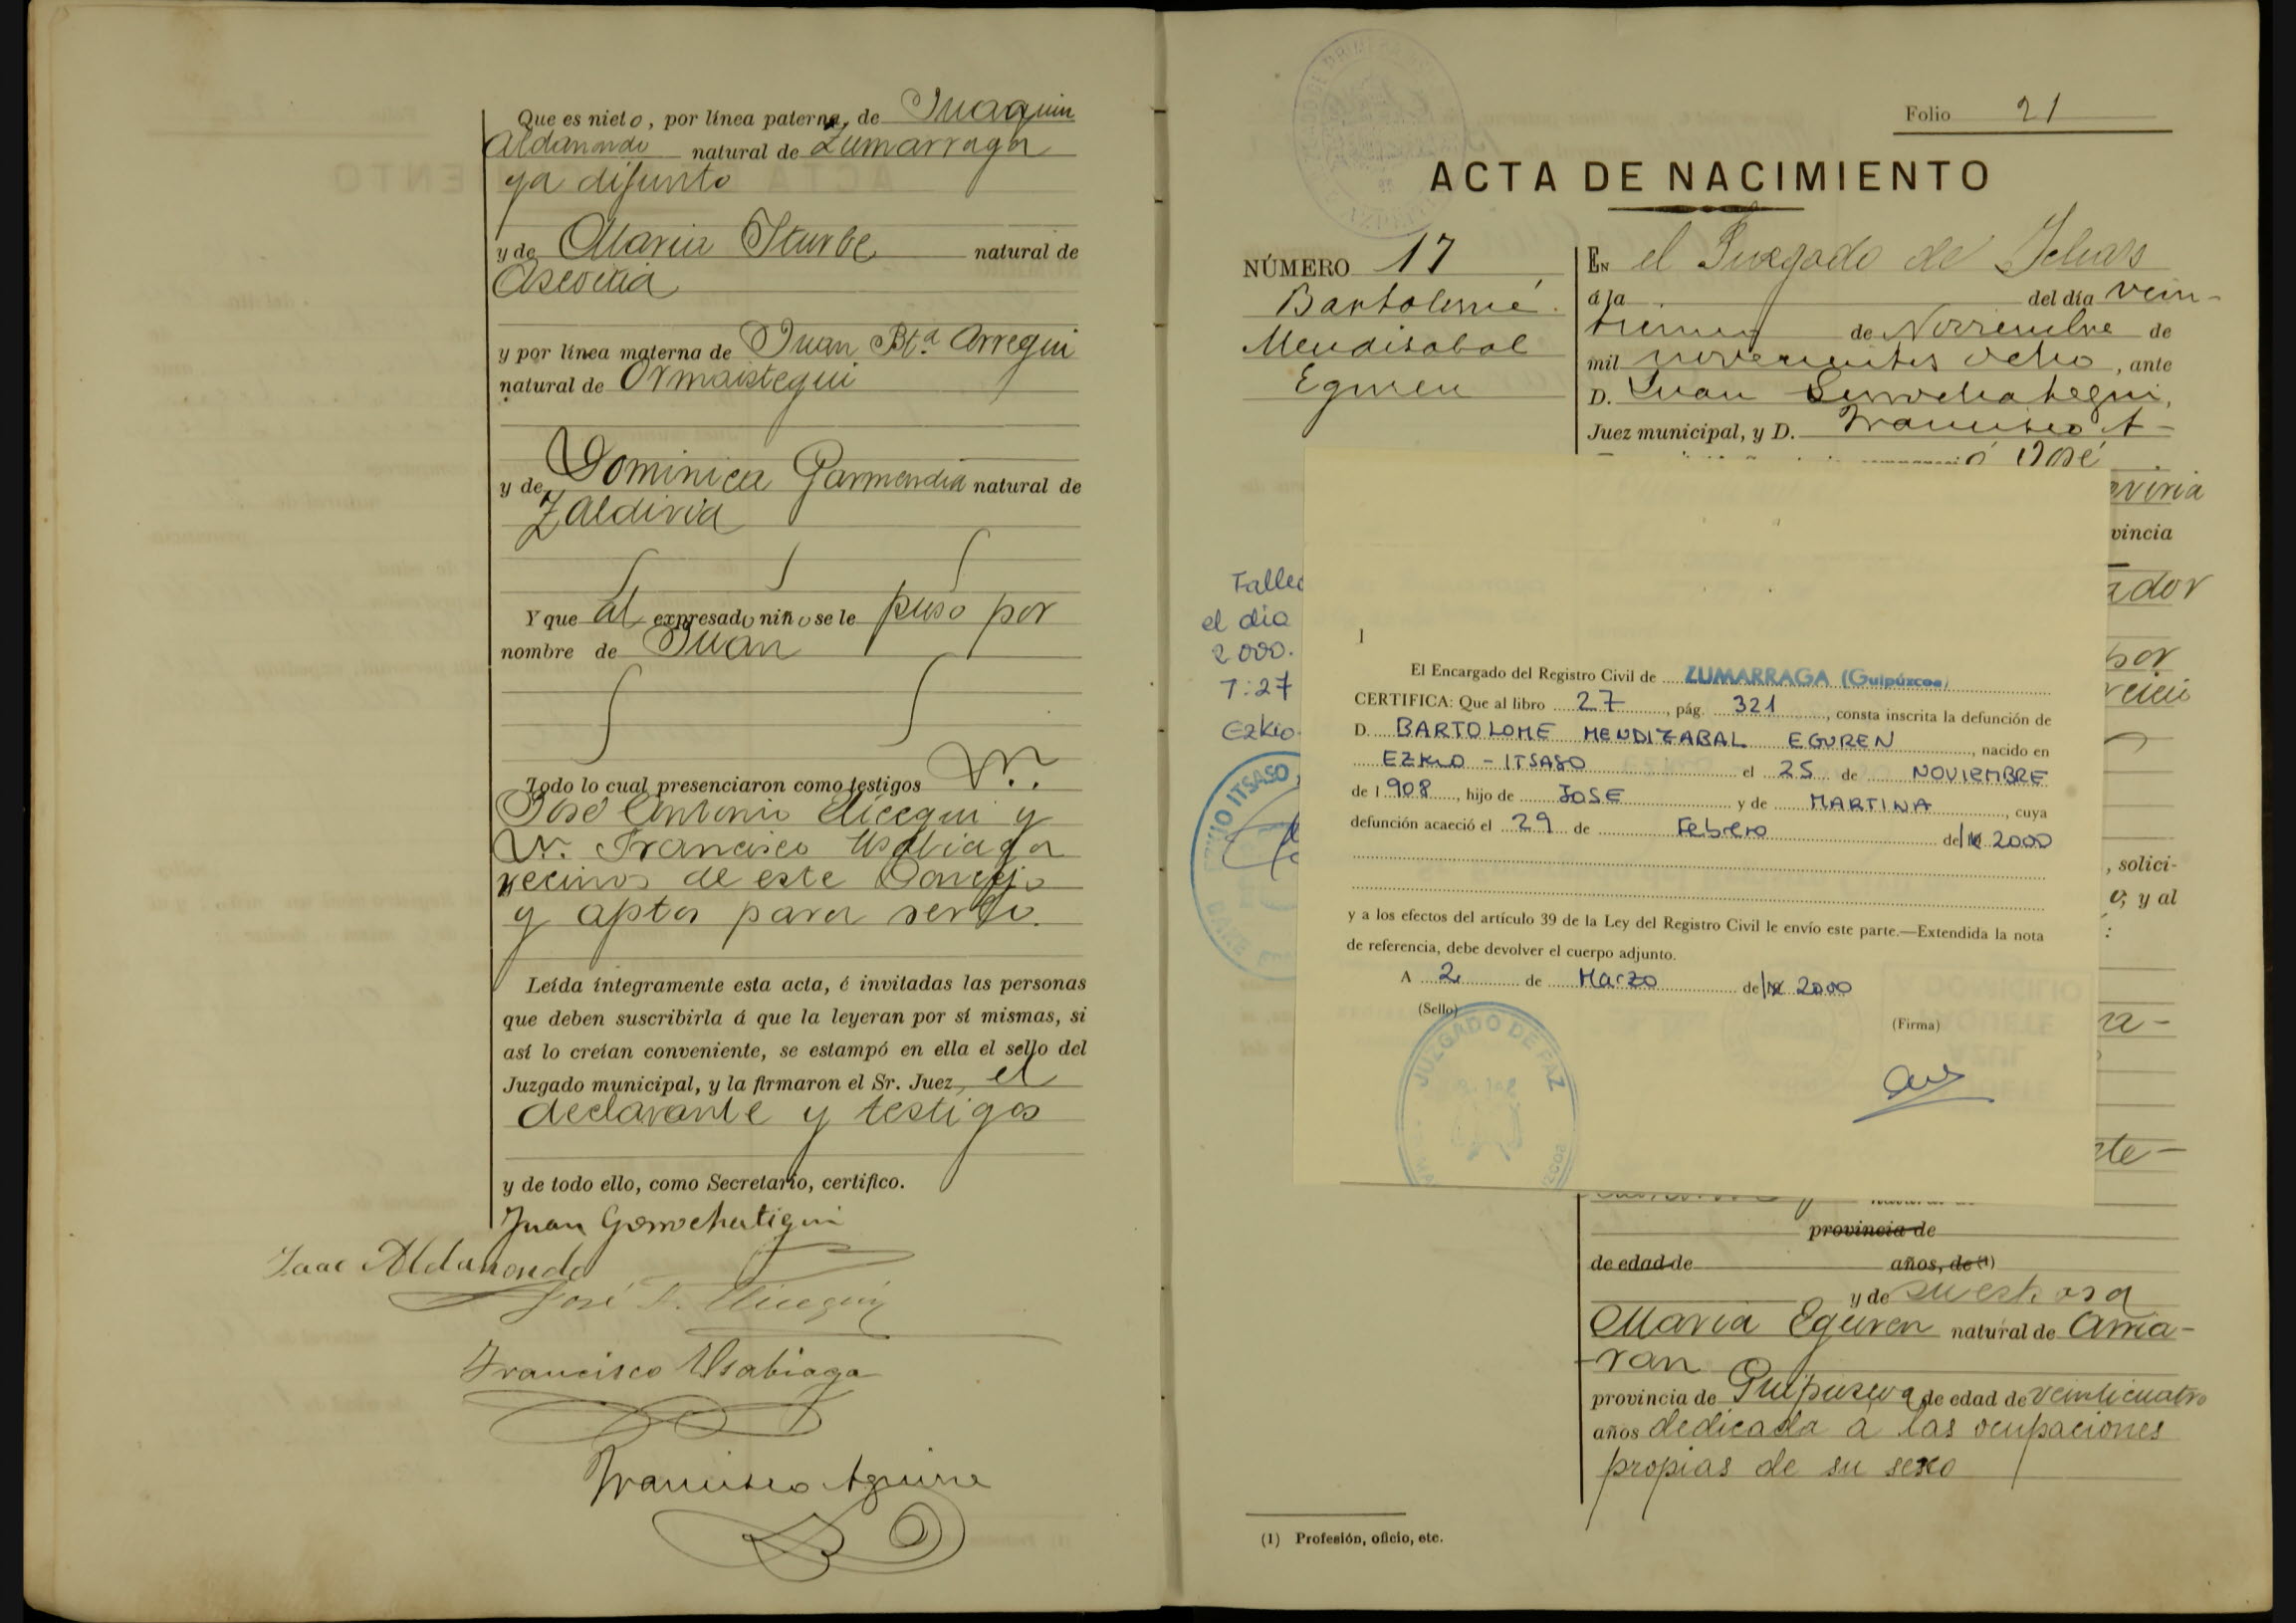 Que es nieto, por línea paterna, de Juaquin
Aldanondo natural de Zumarraga
ya difunto
y de Maria Iturbe natural de
Ascoitia
y por línea materna de Juan Bta. Arregui
natural de Ormaistegui
y de Dominica Garmendia natural de
Zaldivia
Y que al expresado niño se le puso por
nombre de Juan
Todo lo cual presenciaron como testigos D.
José Antonio Elicegui y
D. Francisco Usabiaga
vecinos de este Concejo
y aptos para serlo.
Leída íntegramente esta acta, é invitadas las personas
que deben suscribirla á que la leyeran por sí mismas, si
así lo creían conveniente, se estampó en ella el sello del
Juzgado municipal, y la firmaron el Sr. Juez, el
declarante y testigos
y de todo ello, como Secretario, certifico.
Juan Gorrochategui
Isaac Aldanondo
José A. Elicegui
Francisco Usabiaga
Francisco Aguirre
Folio 21
ACTA DE NACIMIENTO
NÚMERO 17
Bartolomé
Mendisabal
Eguren
EN el Juzgado de Ichaso
á la del día vein-
de Noviembre de
mil novecientos ocho, ante
D. Juan Gorrochategui,
Juez municipal, y D. Francisco A-
ó José
viria
vincia
ador
por
Fallec
el dia
2000.
7:27
Ezkio-
ITSASO
1
El Encargado del Registro Civil de ZUMARRAGA (Guipúzcoa)
CERTIFICA: Que al libro 27, pág. 321, consta inscrita la defunción de
D. BARTOLOME MENDIZABAL EGUREN, nacido en
EZKIO - ITSASO el 25 de NOVIEMBRE
de 1908, hijo de JOSE y de MARTINA, cuya
defunción acaeció el 29 de Febrero de 2000
y a los efectos del artículo 39 de la Ley del Registro Civil le envío este parte.—Extendida la nota
de referencia, debe devolver el cuerpo adjunto.
A 2 de Marzo de 2000
(Sello)
(Firma)
JUZGADO DE PAZ
, solici-
o; y al
:
na-
te-
provincia de
de edad de años, de (1)
y de su esposa
Maria Eguren natural de Ama-
ran
provincia de Guipuscoa de edad de veinticuatro
años dedicada a las ocupaciones
propias de su sexo
(1) Profesión, oficio, etc.